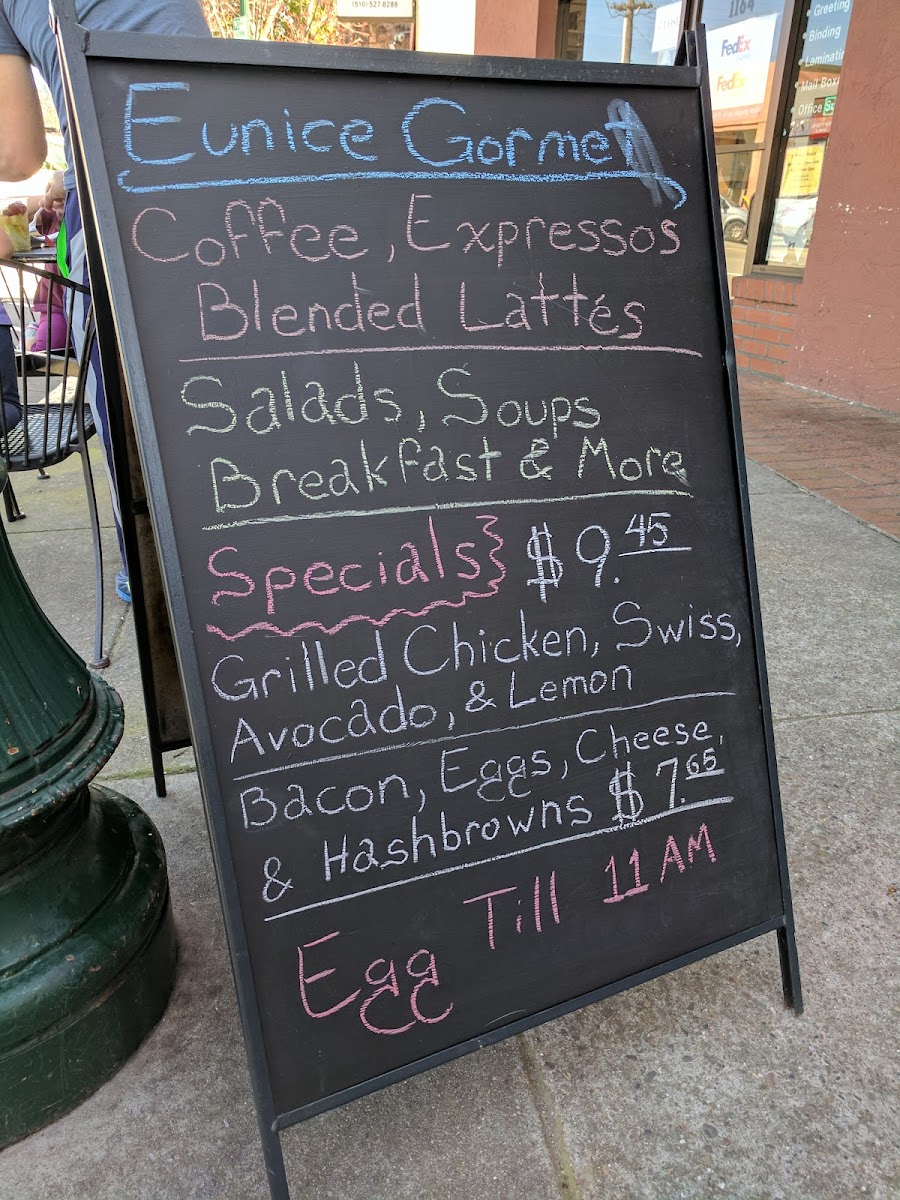 (510) 527-8288
1164
FedEx
FedEx
• Greeting
• Binding
• Laminatin
• Mail Box
• Office Su
Eunice Gormet
Coffee, Expressos
Blended Lattés
Salads, Soups
Breakfast & More
Specials} $9.45
Grilled Chicken, Swiss,
Avocado, & Lemon
Bacon, Eggs, Cheese,
& Hashbrowns $7.65
Egg Till 11 AM